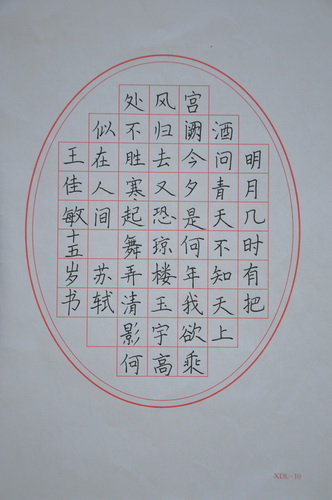 明月几时有把
酒问青天不知天上
宫阙今夕是何年我欲乘
风归去又恐琼楼玉宇高
处不胜寒起舞弄清影何
似在人间 苏轼
王佳敏十五岁书